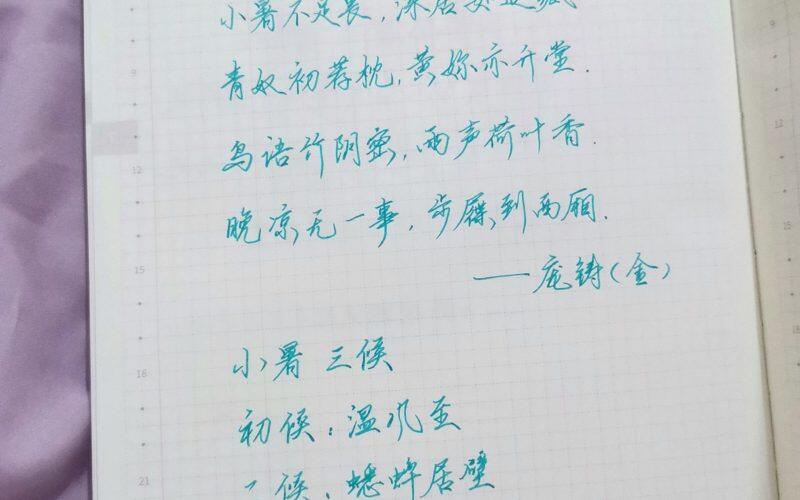 小暑不足畏,深居如退藏
9
青奴初荐枕,黄妳亦升堂.
12
鸟语竹阴密,雨声荷叶香.
晚凉无一事,步屧到西厢.
15
——庞铸(金)
18
小暑三候
初候:温风至
21
二候:蟋蟀居壁